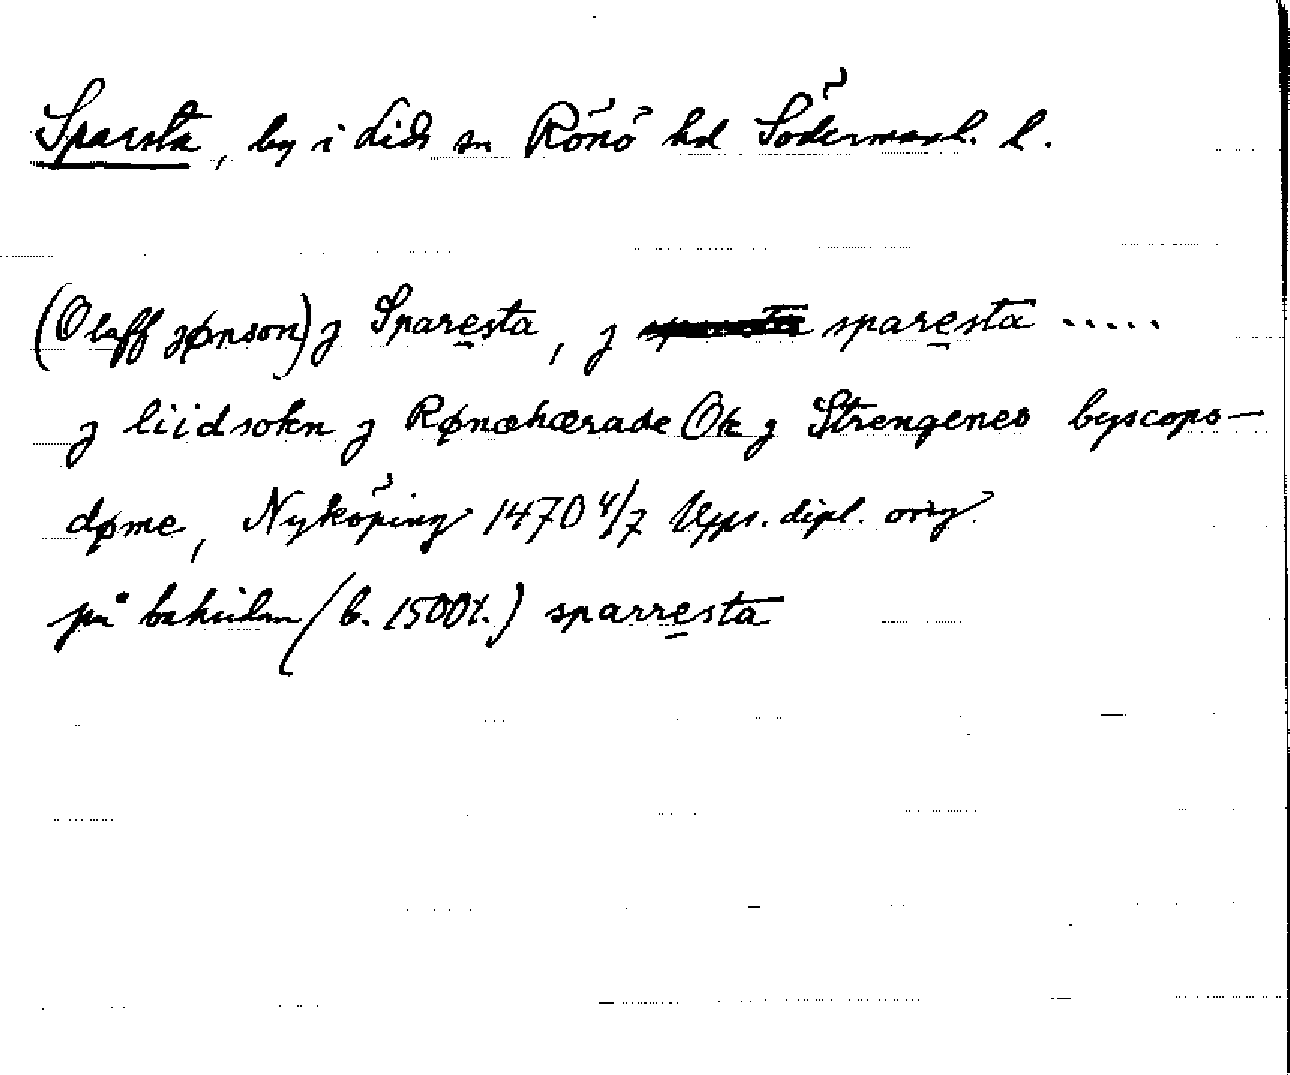 Sparsta, by i Lids sn Rönö hd Södermanl. l.
(Olaff jønson) j Sparesta, j sparesta .....
j liidsokn j Rønæhærade Ok j Strengenes byscops-
døme, Nyköping 1470 4/7 Upps. dipl. orig.
på baksidan (b. 1500t.) sparresta